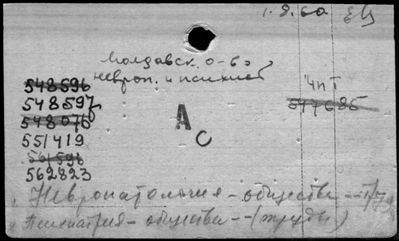 1.8.60
Молдавск. о-во
невроп. и психиат
548596
548597
548076
551419
562823
чпт
547685
А
С
Невропатология - обществ -
Психиатрия - обществ - (труды)